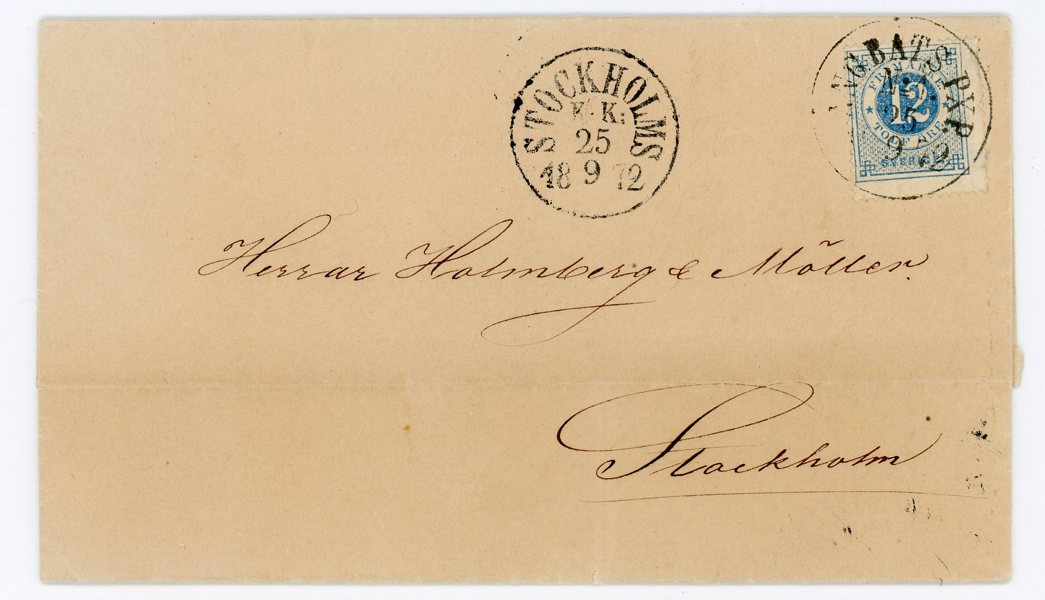 STOCKHOLMS
K. K.
25
18 9 72
ÅNGBÅTS PXP.
25
9 72
FRIMÄRKE
12
TOLF ÖRE
SVERIGE
Herrar Holmberg & Möller.
Stockholm